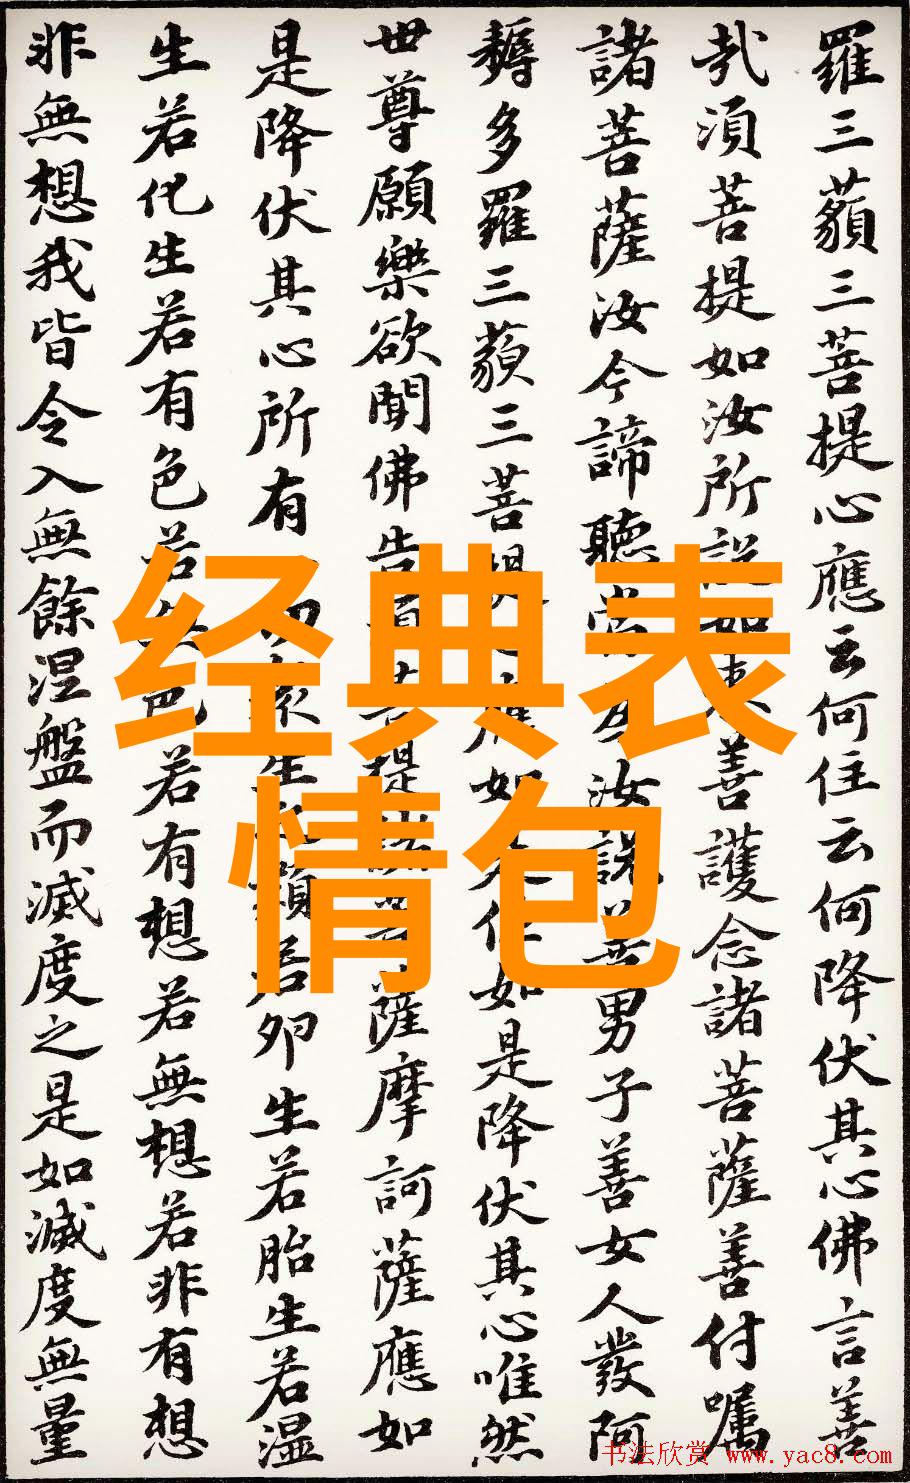 羅三藐三菩提心應云何住云何降伏其心佛言善
哉須菩提如汝所說如來善護念諸菩薩善付囑
諸菩薩汝今諦聽當汝說善男子善女人發阿
耨多羅三藐三菩提應如住如是降伏其心唯然
世尊願樂欲聞佛告須菩提諸菩薩摩訶薩應如
是降伏其心所有切衆生類若卵生若胎生若溫
生若化生若有色若無色若有想若無想若非有想
非無想我皆令入無餘涅盤而滅度之是如滅度無量
经典表
情包
书法欣赏 www.yac8.com